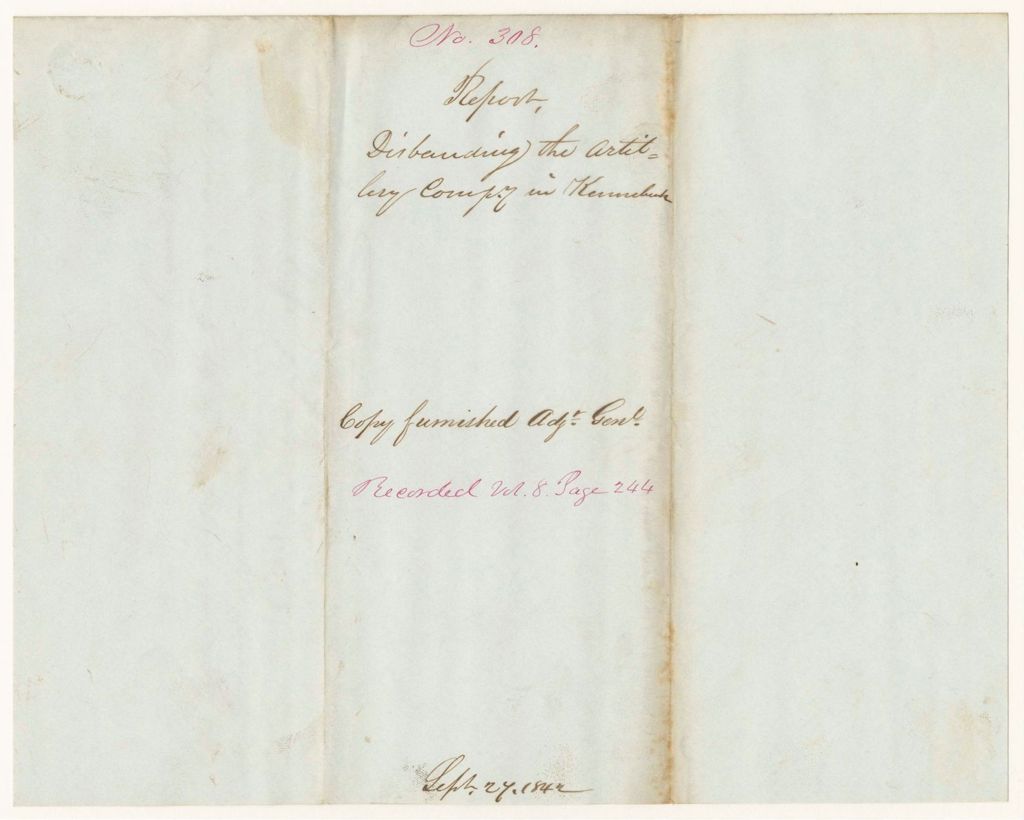 No. 308.
Report,
Disbanding the Artil=
lery Compy in Kennebunk
Copy furnished Adjt. Genl.
Recorded Vol. 8. Page 244
Sept. 27. 1842